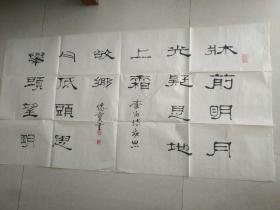 牀前明月
光疑是地
上霜
李白静夜思
故鄉
月低頭思
舉頭望明